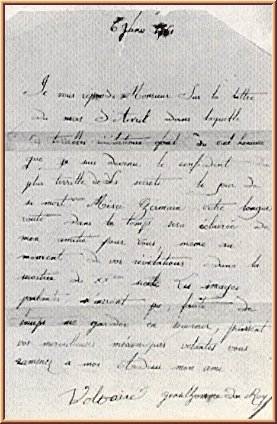 6 Juin 1761
Je vous reponds Monsieur Sur la lettre
du mois d'Avril dans laquelle
que je suis devenu le confident du
plus terrible de Ses secrets le jour de
sa mort Germain, votre longue
route dans le temps sera éclairée de
mon amitié pour vous, meme au
moment de vos révélations dans la
moitiée du xx siecle Les images
parlantes seront pas, faute du
temps me garder en souvenir, puissent
vos merveilleuses mecaniques volantes vous
ramener a moi Audieu mon ami
Voltaire gentilhomme du Roy